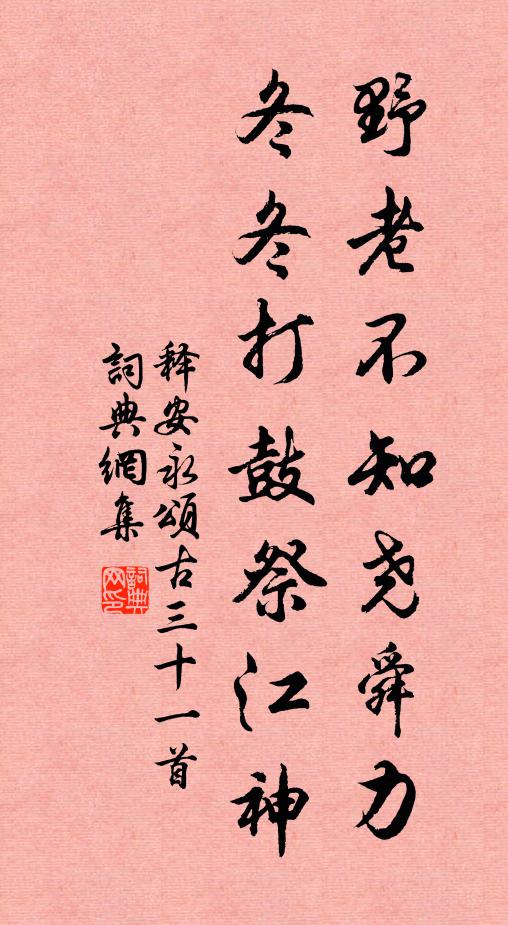 野老不知尧舜力
冬冬打鼓祭江神
释安永頌古三十一首
詞典網集
詞典网印